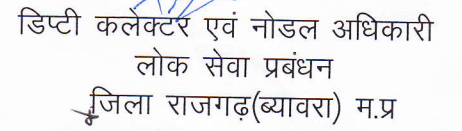 डिप्टी कलेक्टर एवं नोडल अधिकारी
लोक सेवा प्रबंधन
जिला राजगढ़(ब्यावरा) म.प्र